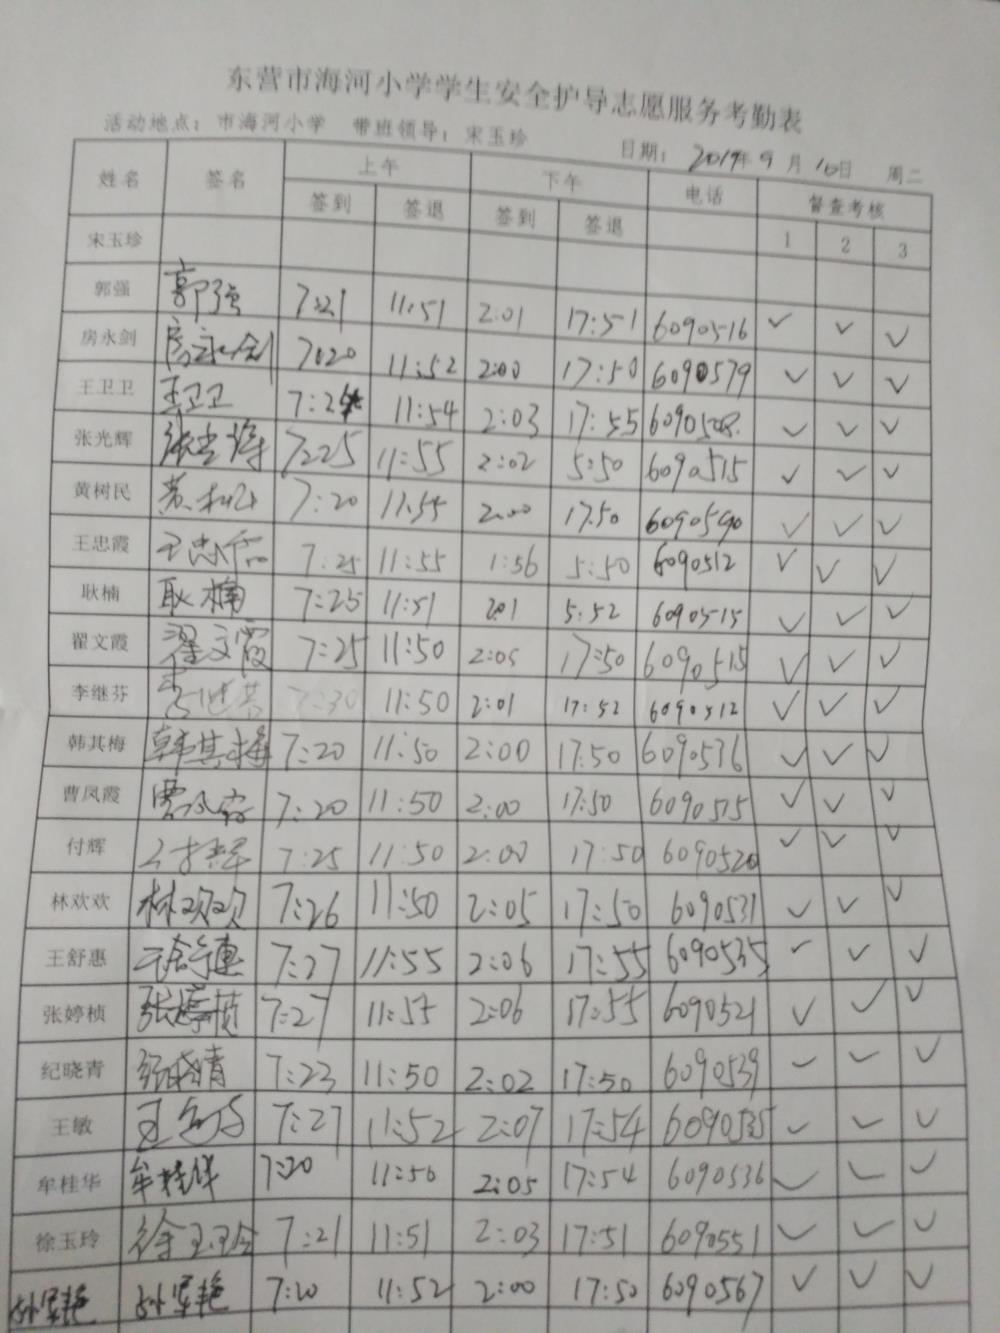 东营市海河小学学生安全护导志愿服务考勤表
活动地点：市海河小学 带班领导：宋玉珍 日期：2019年9月10日 周二
姓名 签名 上午 下午 电话 督查考核
签到 签退 签到 签退 1 2 3
宋玉珍
郭强 郭强 7:21 11:51 2:01 17:51 6090516 ✓ ✓ ✓
房永剑 房永剑 7:20 11:52 2:00 17:50 6090579 ✓ ✓ ✓
王卫卫 王卫卫 11:54 2:03 17:55 6090508. ✓ ✓ ✓
张光辉 7:25 11:55 2:02 5:50 6090515 ✓ ✓ ✓
黄树民 7:20 11:55 2:00 17.50 6090590 ✓ ✓ ✓
王忠霞 王忠霞 7:25 11:55 1:56 5:50 6090512 ✓ ✓ ✓
耿楠 耿楠 7:25 11:51 2:01 5:52 6090515 ✓ ✓ ✓
翟文霞 翟文霞 7:25 11:50 2:05 17:50 6090515 ✓ ✓ ✓
李继芬 李继芬 7:30 11:50 2:01 17:52 6090512 ✓ ✓ ✓
韩其梅 韩其梅 7:20 11:50 2:00 17:50 6090536 ✓ ✓ ✓
曹凤霞 曹凤霞 7:20 11:50 2:00 17:50 6090575 ✓ ✓ ✓
付辉 付辉 7:25 11:50 2:00 17:50 6090520 ✓ ✓ ✓
林欢欢 林欢欢 7:26 11:50 2:05 17:50 6090531 ✓ ✓ ✓
王舒惠 王舒惠 7:27 11:55 2:06 17:55 6090535 ✓ ✓ ✓
张婷桢 张婷桢 7:27 11:55 2:06 17:55 6090521 ✓ ✓ ✓
纪晓青 纪晓青 7:23 11:50 2:02 17:50 6090539 ✓ ✓ ✓
王敏 王敏 7:27 11:52 2:07 17:54 6090535 ✓ ✓ ✓
牟桂华 牟桂华 7:20 11:50 2:05 17:54 6090536 ✓ ✓ ✓
徐玉玲 徐玉玲 7:21 11:51 2:03 17:51 6090551 ✓ ✓ ✓
孙军艳 孙军艳 7:20 11:52 2:00 17:50 6090567 ✓ ✓ ✓